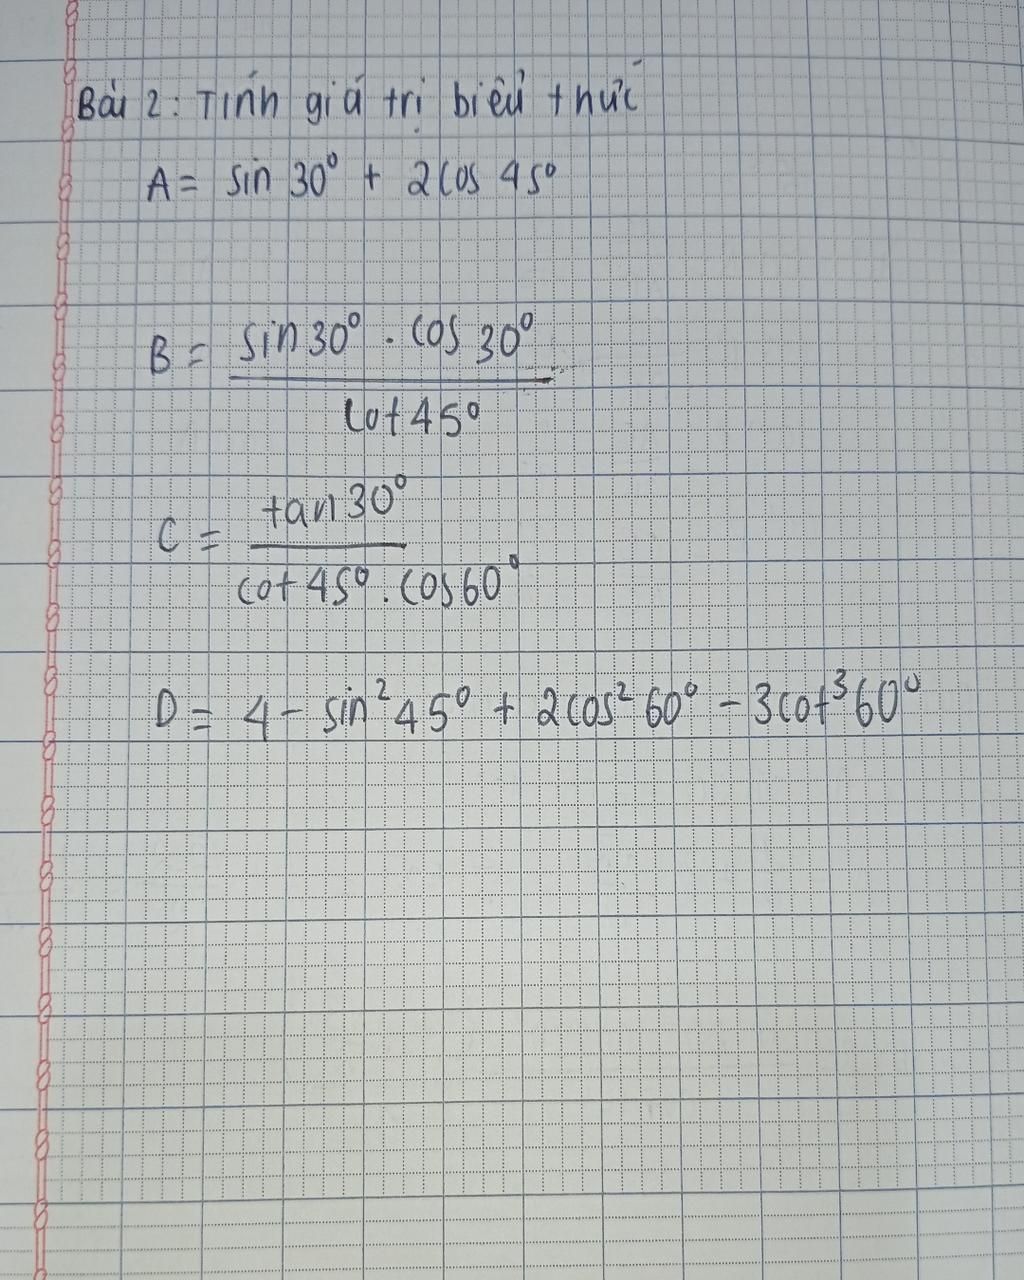 Bài 2: Tính giá trị biểu thức
A = sin 30° + 2cos 45°
B = sin 30° . cos 30°
cot 45°
C = tan 30°
cot 45° . cos 60°
D = 4 - sin² 45° + 2cos² 60° - 3cot³ 60°